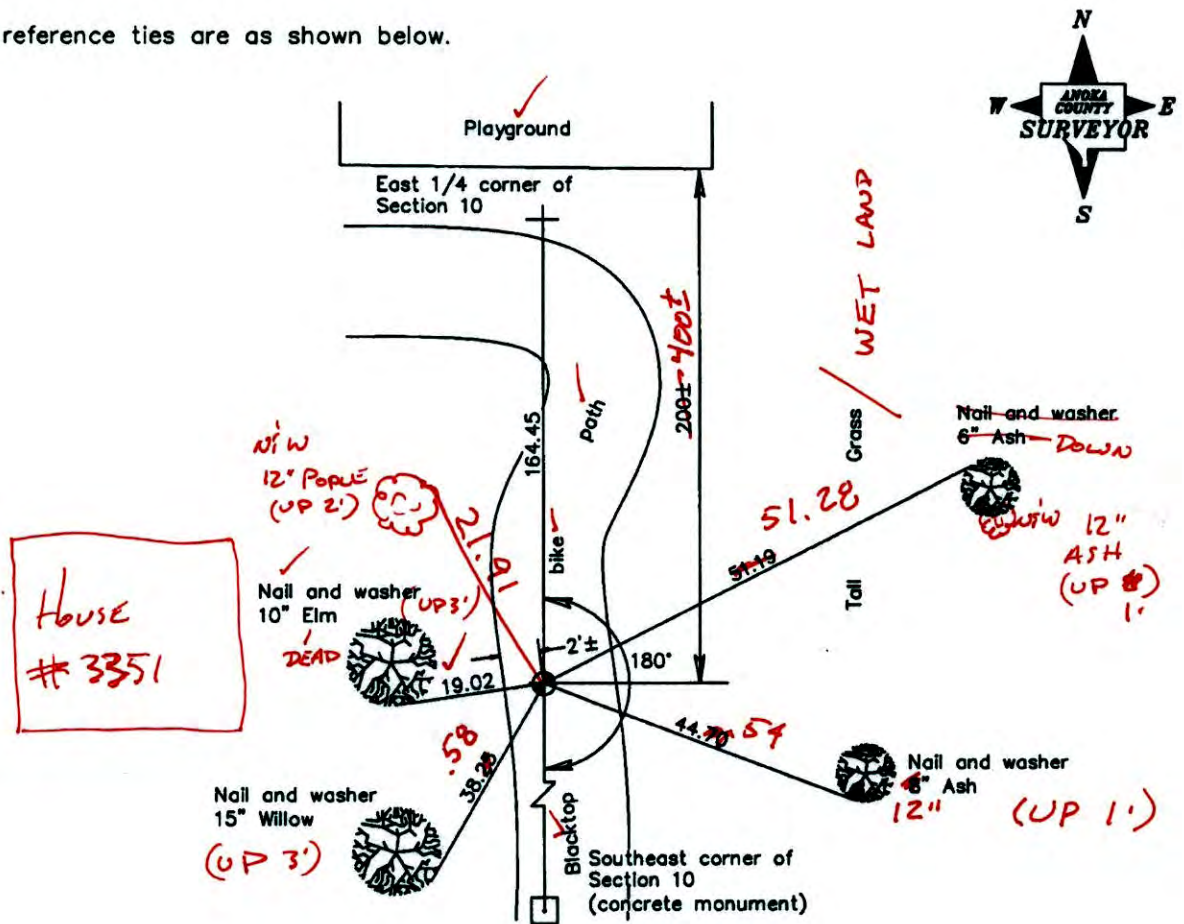 reference ties are as shown below.
N
W
ANOKA
COUNTY
E
SURVEYOR
S
Playground
East 1/4 corner of
Section 10
WET LAND
200± 400±
164.45
path
Grass
Nail and washer
6" Ash DOWN
NEW
12" POPLE
(UP 2')
21.91
bike
51.28
51.19
NEW 12"
ASH
(UP
1'
House
# 3351
Nail and washer
10" Elm
(UP 3')
DEAD
Tall
2'±
180°
19.02
.58
44.70 54
Nail and washer
15" Willow
(UP 3')
Nail and washer
Ash
12" (UP 1')
Blacktop
Southeast corner of
Section 10
(concrete monument)